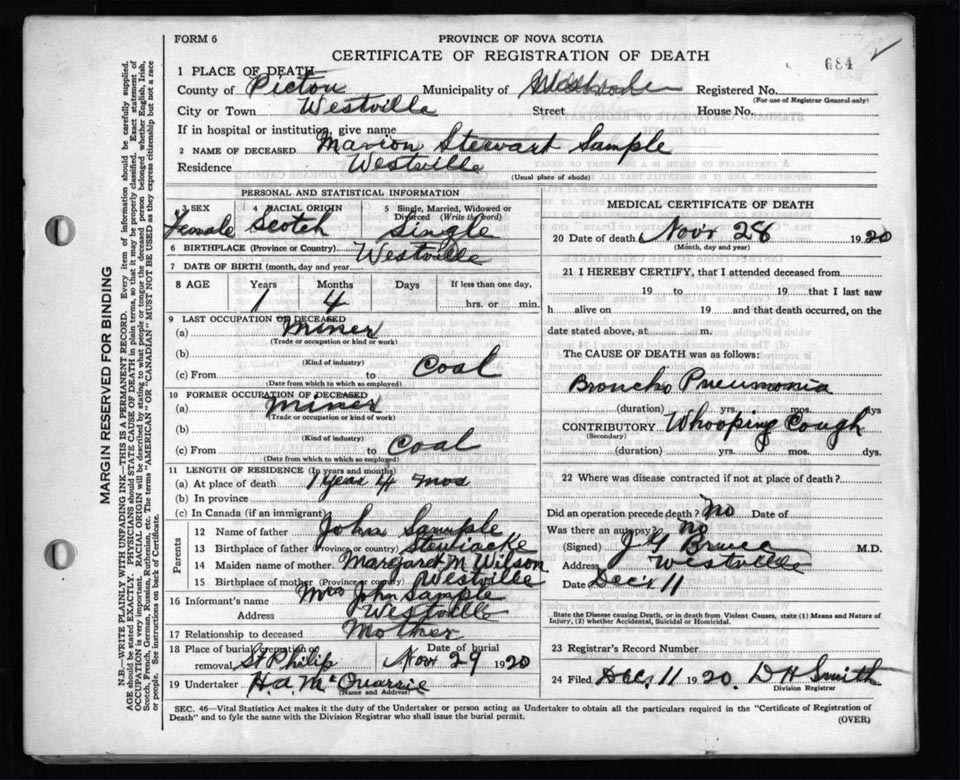 FORM 6
PROVINCE OF NOVA SCOTIA
CERTIFICATE OF REGISTRATION OF DEATH
684
1 PLACE OF DEATH
County of Pictou Municipality of Registered No.
(For use of Registrar General only)
City or Town Westville Street House No.
If in hospital or institution, give name
2 NAME OF DECEASED Marion Stewart Sample
Residence Westville
(Usual place of abode)
PERSONAL AND STATISTICAL INFORMATION
3 SEX 4 RACIAL ORIGIN 5 Single, Married, Widowed or Divorced (Write the word)
Female Scotch Single
6 BIRTHPLACE (Province or Country) Westville
7 DATE OF BIRTH (month, day and year)
8 AGE Years Months Days If less than one day,
1 4 hrs. or min.
9 LAST OCCUPATION OF DECEASED
(a) Miner
(Trade or occupation or kind of work)
(b)
(Kind of industry)
(c) From to Coal
(Date from which to which so employed)
10 FORMER OCCUPATION OF DECEASED
(a) Miner
(Trade or occupation or kind of work)
(b)
(Kind of industry)
(c) From to Coal
(Date from which to which so employed)
11 LENGTH OF RESIDENCE (In years and months)
(a) At place of death 1 year 4 mos
(b) In province
(c) In Canada (if an immigrant)
Parents
12 Name of father John Sample
13 Birthplace of father (Province or country) Stewiacke
14 Maiden name of mother Margaret M Wilson
15 Birthplace of mother (Province or country) Westville
16 Informant's name Mrs John Sample
Address Westville
17 Relationship to deceased Mother
18 Place of burial, cremation or removal St Philip Date of burial Nov 29 1920
19 Undertaker H. A McQuarrie
(Name and Address)
MEDICAL CERTIFICATE OF DEATH
20 Date of death Novr 28 1920
(Month, day and year)
21 I HEREBY CERTIFY, that I attended deceased from
19 to 19 that I last saw
h alive on 19 and that death occurred, on the
date stated above, at m.
The CAUSE OF DEATH was as follows:
Broncho Pneumonia
(duration) yrs. mos. dys
CONTRIBUTORY Whooping Cough
(Secondary)
(duration) yrs. mos. dys.
22 Where was disease contracted if not at place of death?
Did an operation precede death? No Date of
Was there an autopsy? no
(Signed) J G Bruce M.D.
Address Westville
Date Dec 11
State the Disease causing Death, or in death from Violent Causes, state (1) Means and Nature of
Injury, (2) whether Accidental, Suicidal or Homicidal.
23 Registrar's Record Number
24 Filed Dec, 11 1920. D H Smith
Division Registrar
SEC. 46—Vital Statistics Act makes it the duty of the Undertaker or person acting as Undertaker to obtain all the particulars required in the "Certificate of Registration of
Death" and to fyle the same with the Division Registrar who shall issue the burial permit.
(OVER)
MARGIN RESERVED FOR BINDING
N.B.—WRITE PLAINLY WITH UNFADING INK—THIS IS A PERMANENT RECORD. Every item of information should be carefully supplied.
AGE should be stated EXACTLY. PHYSICIANS should STATE CAUSE OF DEATH in plain terms, so that it may be properly classified. Exact statement of
OCCUPATION is very important. RACIAL ORIGIN will be described by stating to what people or tongue the deceased person belonged whether English, Irish,
Scotch, French, German, Russian, Ruthenian, etc. The terms "AMERICAN" OR "CANADIAN" MUST NOT BE USED as they express citizenship but not a race
or people. See instructions on back of Certificate.